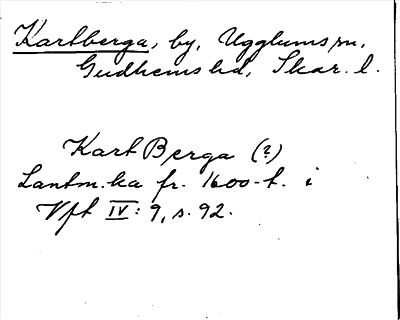 Karlberga, by, Ugglums sn,
Gudhems hd, Skar. l.
Karl Berga (?)
Lantm.ka fr. 1600-t. i
Vft IV: 9, s. 92.